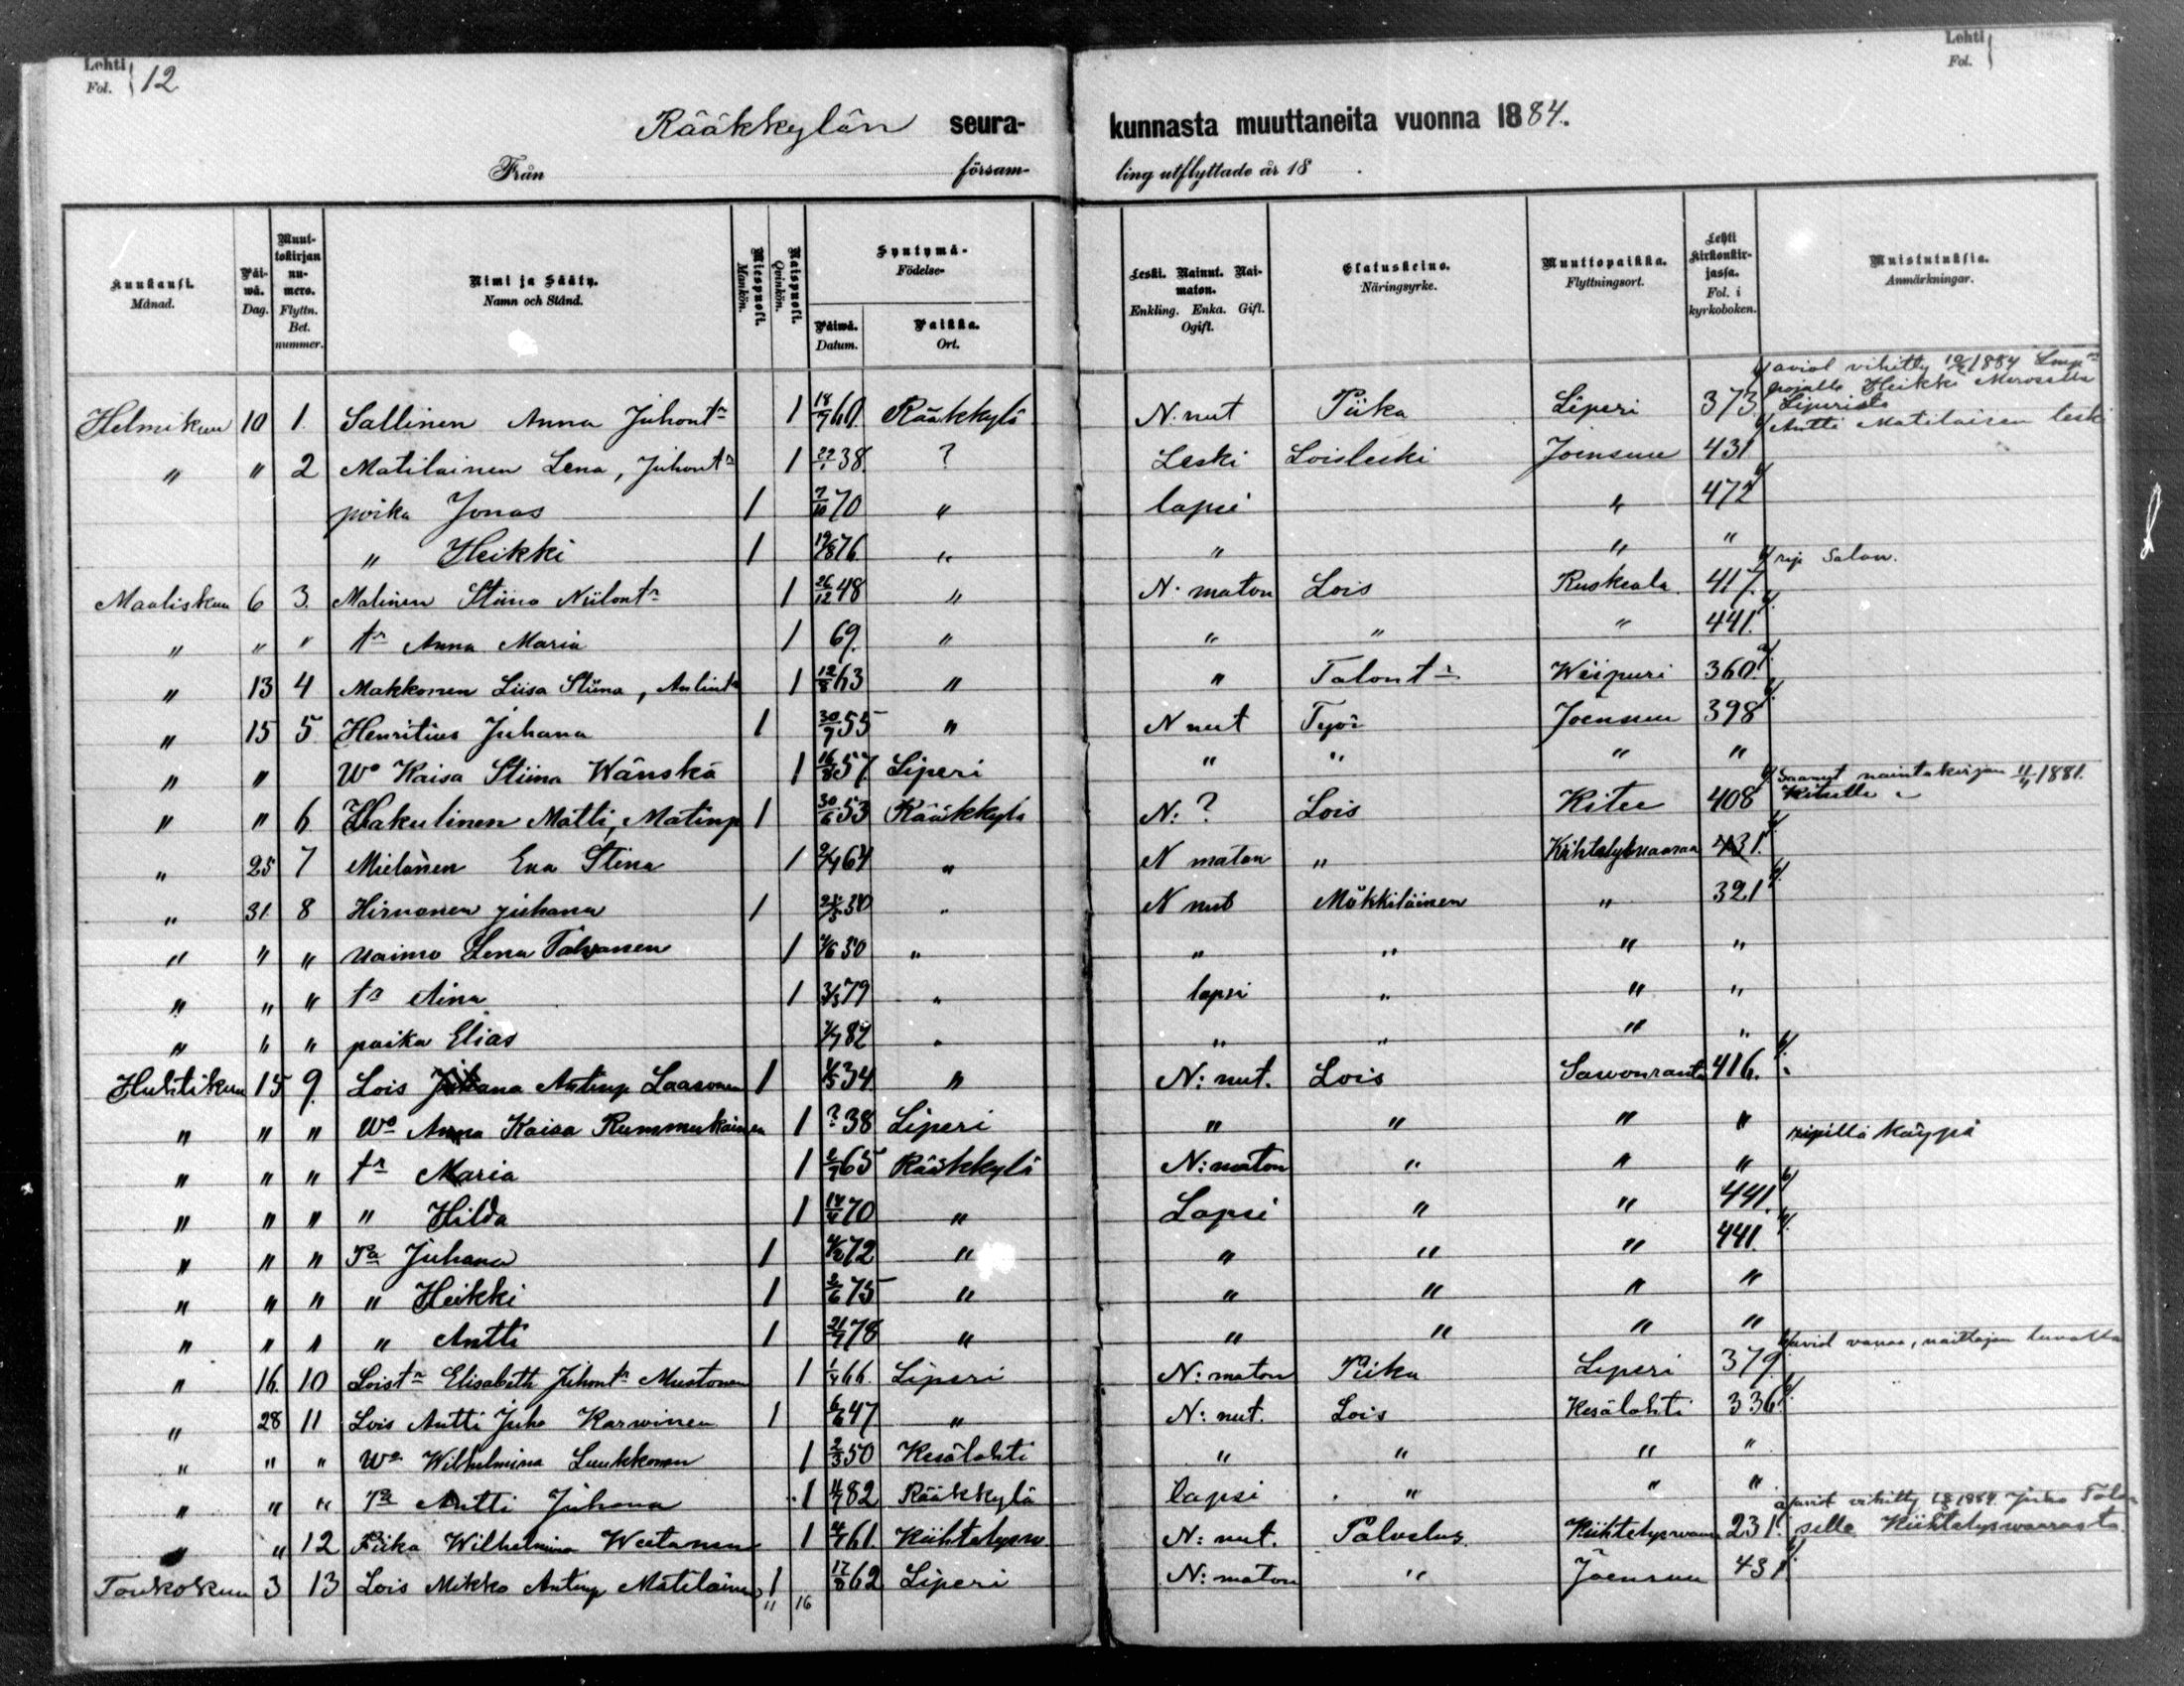 Lehti
Fol. 12
Lehti
Fol.
Rääkkylän seurakunnasta muuttaneita vuonna 1884.
Från församling utflyttade år 18 .
Kuukausi. Månad.
Päivä. Dag.
Muuttokirjan numero. Flyttn. Bet. nummer.
Nimi ja Sääty. Namn och Stånd.
Miespuoli. Mankön.
Naispuoli. Qvinkön.
Syntymä- Födelse-
Päivä. Datum.
Paikka. Ort.
Leski. Nainut. Naimaton. Enkling. Enka. Gift. Ogift.
Elatuskeino. Näringsyrke.
Muuttopaikka. Flyttningsort.
Lehti Kirkonkirjassa. Fol. i kyrkoboken.
Muistutuksia. Anmärkningar.
Helmikuu 10 1. Sallinen Anna Juhontr 1 18/9 60. Rääkkylä N. nut Piika Liperi 373 aviol vihitty 1884 pojalle Heikki Liperistä
" " 2 Matilainen Lena, Juhontr 1 22/1 38 ? Leski Loisleski Joensuu 431 Antti Matilaisen leski
poika Jonas 1 7/10 70 " lapsi " 472
" Heikki 1 19/8 76 " " " "
Maaliskuu 6 3. Malinen Stiina Niilontr 1 26/12 48 " N. maton Lois Ruskeala 417. rip Salon.
" " " tr Anna Maria 1 69. " " " " 441.
" 13 4 Makkonen Liisa Stiina, Antintr 1 12/8 63 " " Talontr Wiipuri 360.
" 15 5. Henritius Juhana 1 30/7 55 " N nut Työ Joensuu 398
" " Wo Kaisa Stiina Wänskä 1 16/8 57 Liperi " " " "
" " 6. Hakulinen Matti, Matinp 1 30/6 53 Rääkkylä N: ? Lois Kitee 408 Saanut naintakirjan 1881. Kiteelle
" 25 7 Mielonen Eva Stina 1 64 " N maton " Kiihtelyksvaaraa 431.
" 31. 8 Hirvonen Juhana 1 30 " N nut Mökkiläinen " 321
" " " vaimo Lena Tahvanen 1 4/6 30 " " " " "
" " " tr Aina 1 3/3 79 " lapsi " " "
" " " poika Elias 82 " " " " "
Huhtikuu 15 9. Lois Juhana Antinp Laasonen 1 34 " N: nut. Lois Sawonranta 416.
" " " Wo Anna Kaisa Rummukainen 1 ? 38 Liperi " " " "
" " " tr Maria 1 2/7 65 Rääkkylä N: maton " " " ripillä käypä
" " " " Hilda 1 14/4 70 " Lapsi " " 441.
" " " Pa Juhana 1 72 " " " " 441.
" " " " Heikki 1 2/6 75 " " " " "
" " " " Antti 1 21/7 78 " " " " "
" 16. 10 Loistr Elisabeth Juhontr Mustonen 1 1/4 66. Liperi N: maton Piika Liperi 379 aviol vapaa, naittajan luvalla
" 28 11 Lois Antti Juho Karvinen 1 6/6 47 " N: nut. Lois Kesälahti 336.
" " " Wo Wilhelmina Luukkonen 1 2/3 50 Kesälahti " " " "
" " " Pa Antti Juhana 1 82 Rääkkylä lapsi " " "
" " 12 Piika Wilhelmina Westanen 1 61. Kiihtelysw N: nut. Palvelus. Kiihtelyswaara 231. aviol vihitty 1884 Juho selle Kiihtelyswaarasta
Toukokuu 3 13 Lois Mikko Antinp Matilainen 1 17/8 62 Liperi N: maton " Joensuu 431.
11 16